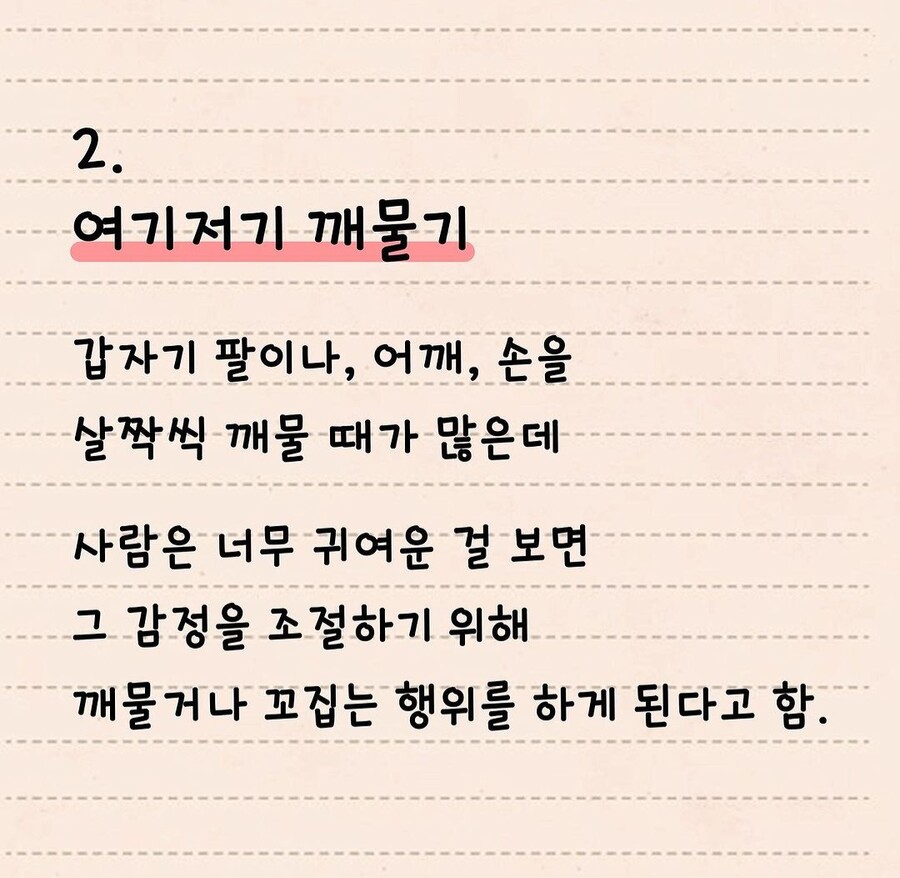 2.
여기저기 깨물기
갑자기 팔이나, 어깨, 손을
살짝씩 깨물 때가 많은데
사람은 너무 귀여운 걸 보면
그 감정을 조절하기 위해
깨물거나 꼬집는 행위를 하게 된다고 함.